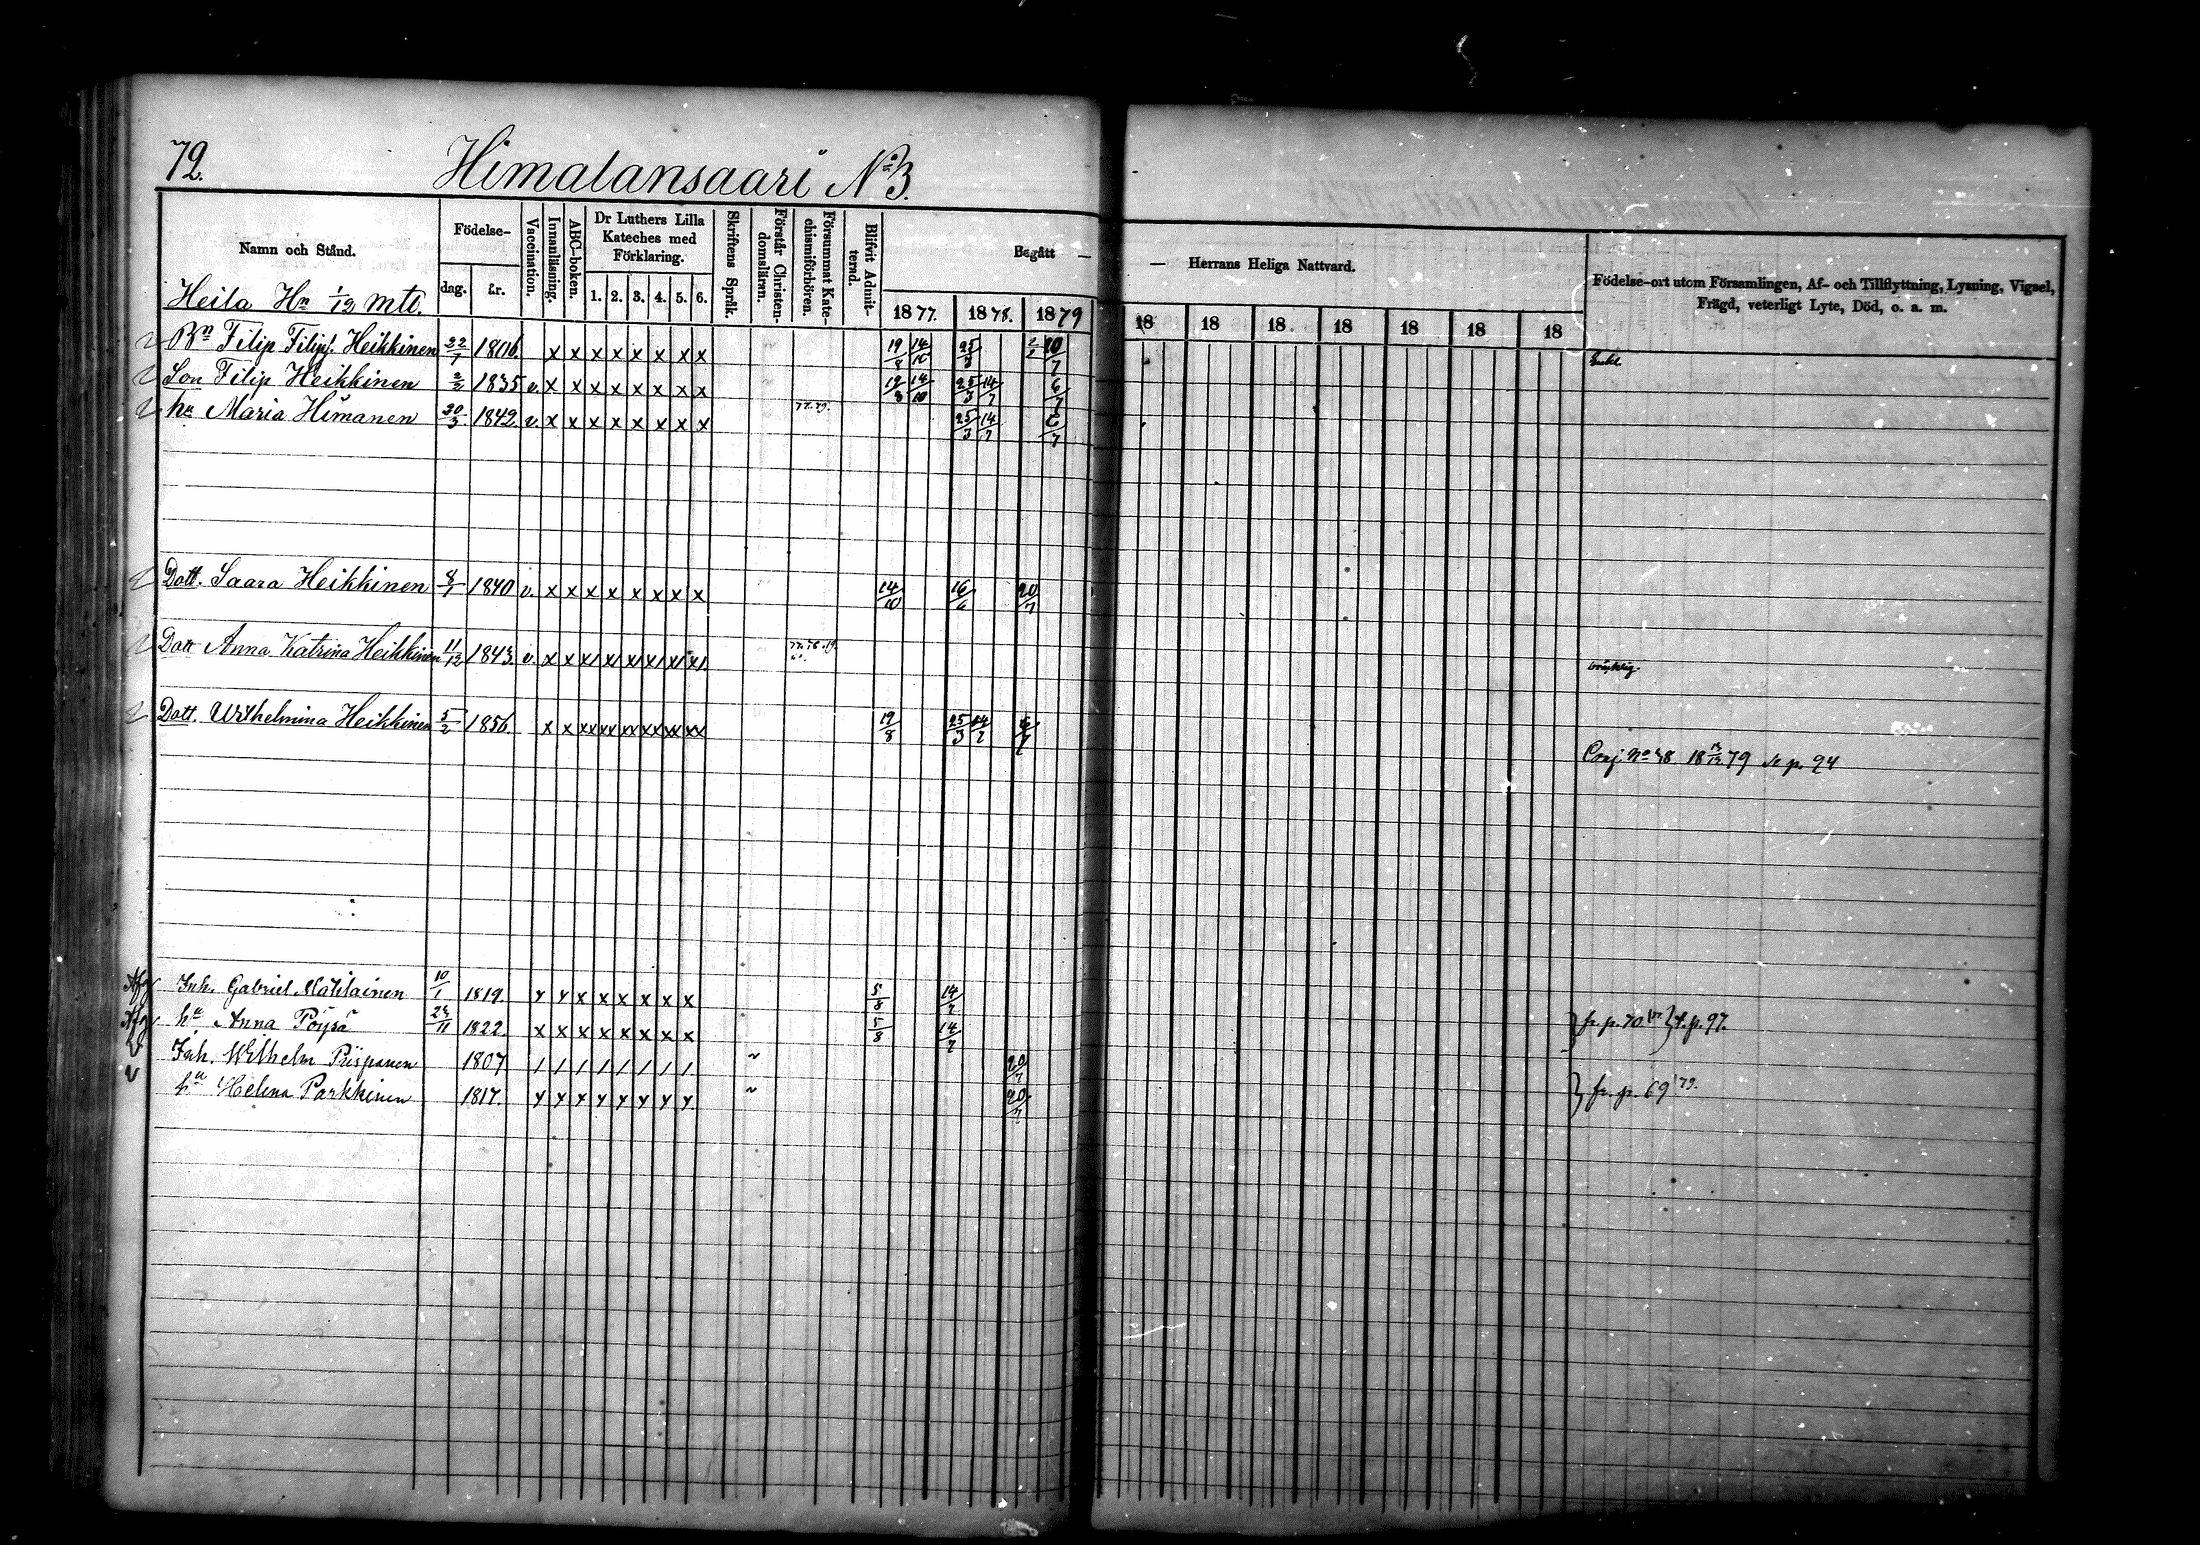 72.
Himalansaari No 3.
Namn och Stånd.
Födelse-
dag.
år.
Vaccination.
Innanläsning.
ABC-boken.
Dr Luthers Lilla
Kateches med
Förklaring.
1. 2. 3. 4. 5. 6.
Skriftens Språk.
Förstår Christen-
domsläran.
Försummat Kate-
chismiförhören.
Blifvit Admit-
terad.
Begått — — Herrans Heliga Nattvard.
1877. 1878. 1879 18 18 18 18 18 18 18
Födelse-ort utom Församlingen, Af- och Tillflyttning, Lysning, Vigsel,
Frägd, veterligt Lyte, Död, o. a. m.
Heila Hn 1/12 mtl.
Bn Filip Filips. Heikkinen 22/7 1806. x x x x x x x x 19/8 14/10 25/3
Son Filip Heikkinen 1835 v. x x x x x x x x 19/8 14/10 25/3 14/7 6/7
hu Maria Himanen 30/3 1842 v. x x x x x x x x 77.79. 25/3 14/7 6/7
Dott. Saara Heikkinen 8/7 1840 v. x x x x x x x x 14/10 16/6 20/7
Dott Anna Katrina Heikkinen 11/12 1843. v. x x x x x x x x 77.78.79.
Dott. Wilhelmina Heikkinen 5/2 1856. x x xx xx xx xx xx xx 19/8 25/3 14/7 6/7
Conj. No 38 18 79 Se p. 94
Inh. Gabriel Matilainen 10/1 1819. x x x x x x x x 5/8 14/7
hu Anna Pöyrä 1822. x x x x x x x x 5/8 14/7 fr. p. 70 t. p. 97.
Inh. Wilhelm Piispanen 1807 / / / / / / / / 20/7
hu Helena Parkkinen 1817. x x x x x x x x 20/7 fr. p. 69 79.